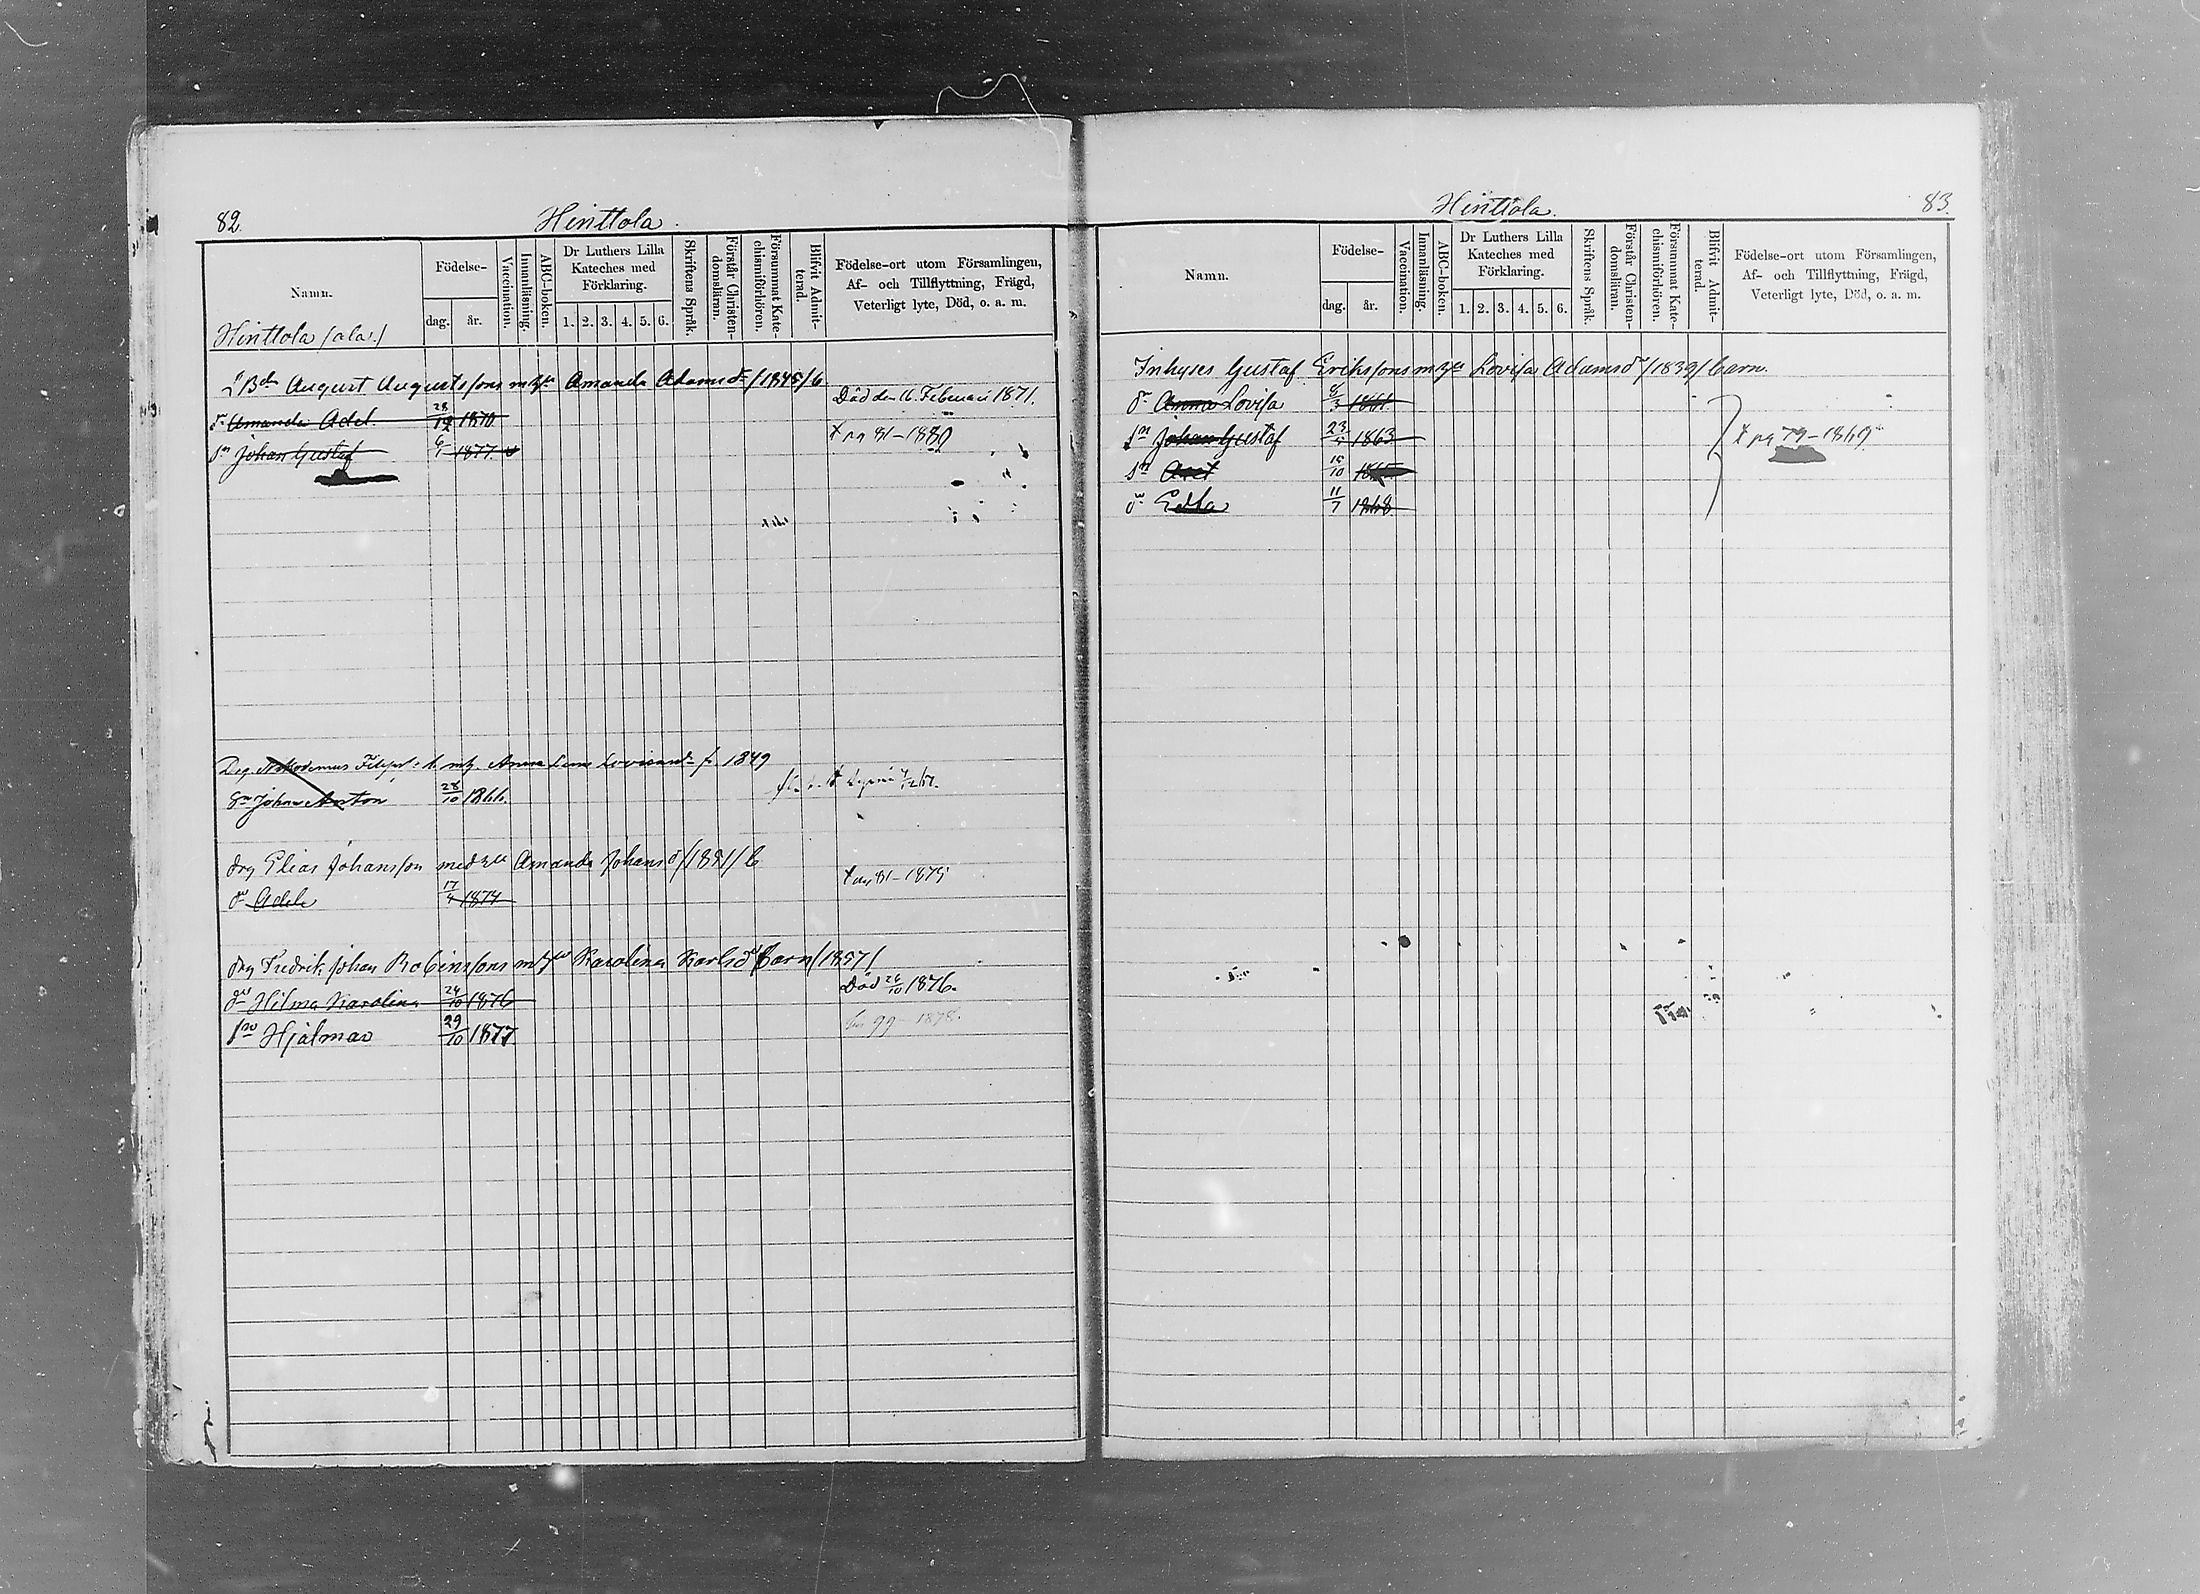 82.
Hinttola.
Namn.
Födelse-
dag.
år.
Vaccination.
Innanläsning.
ABC-boken.
Dr Luthers Lilla
Kateches med
Förklaring.
1. 2. 3. 4. 5. 6.
Skriftens Språk.
Förstår Christen-
domsläran.
Försummat Kate-
chismiförhören.
Blifvit Admit-
terad.
Födelse-ort utom Församlingen,
Af- och Tillflyttning, Frägd,
Veterligt lyte, Död, o. a. m.
Hinttola (ala.)
August Augustssons Amanda Adamsdr /1845/ b
dr Amanda Adel. 28/12 1870 Död den 16 Februari 1871.
sn Johan Gustaf 6/1 1877 pg 81–1880
Drg. Nikodemus Anna Lena f. 1849
Sn Johan Anton 28/10 1866.
drg Elias Johansson med Amanda Johansd b
dr Adele 17/4 1874 pg 81–1875
drg Fredrik Johan Robinssons Karolina Karlsdr barn /1857/
dr Hilma Karolina 24/10 1876 Död 26/10 1876.
sn Hjalmar 29/10 1877 99–1878.
Hinttola.
83.
Namn.
Födelse-
dag.
år.
Vaccination.
Innanläsning.
ABC-boken.
Dr Luthers Lilla
Kateches med
Förklaring.
1. 2. 3. 4. 5. 6.
Skriftens Språk.
Förstår Christen-
domsläran.
Försummat Kate-
chismiförhören.
Blifvit Admit-
terad.
Födelse-ort utom Församlingen,
Af- och Tillflyttning, Frägd,
Veterligt lyte, Död, o. a. m.
Inhyses Gustaf Erikssons Lovisa Adamsd /1839/ barn.
dr Anna Lovisa 8/3 1861.
sn Johan Gustaf 23/5 1863 pg 79–1869
sn Axel 15/10 1865
dr Edla 11/7 1868.